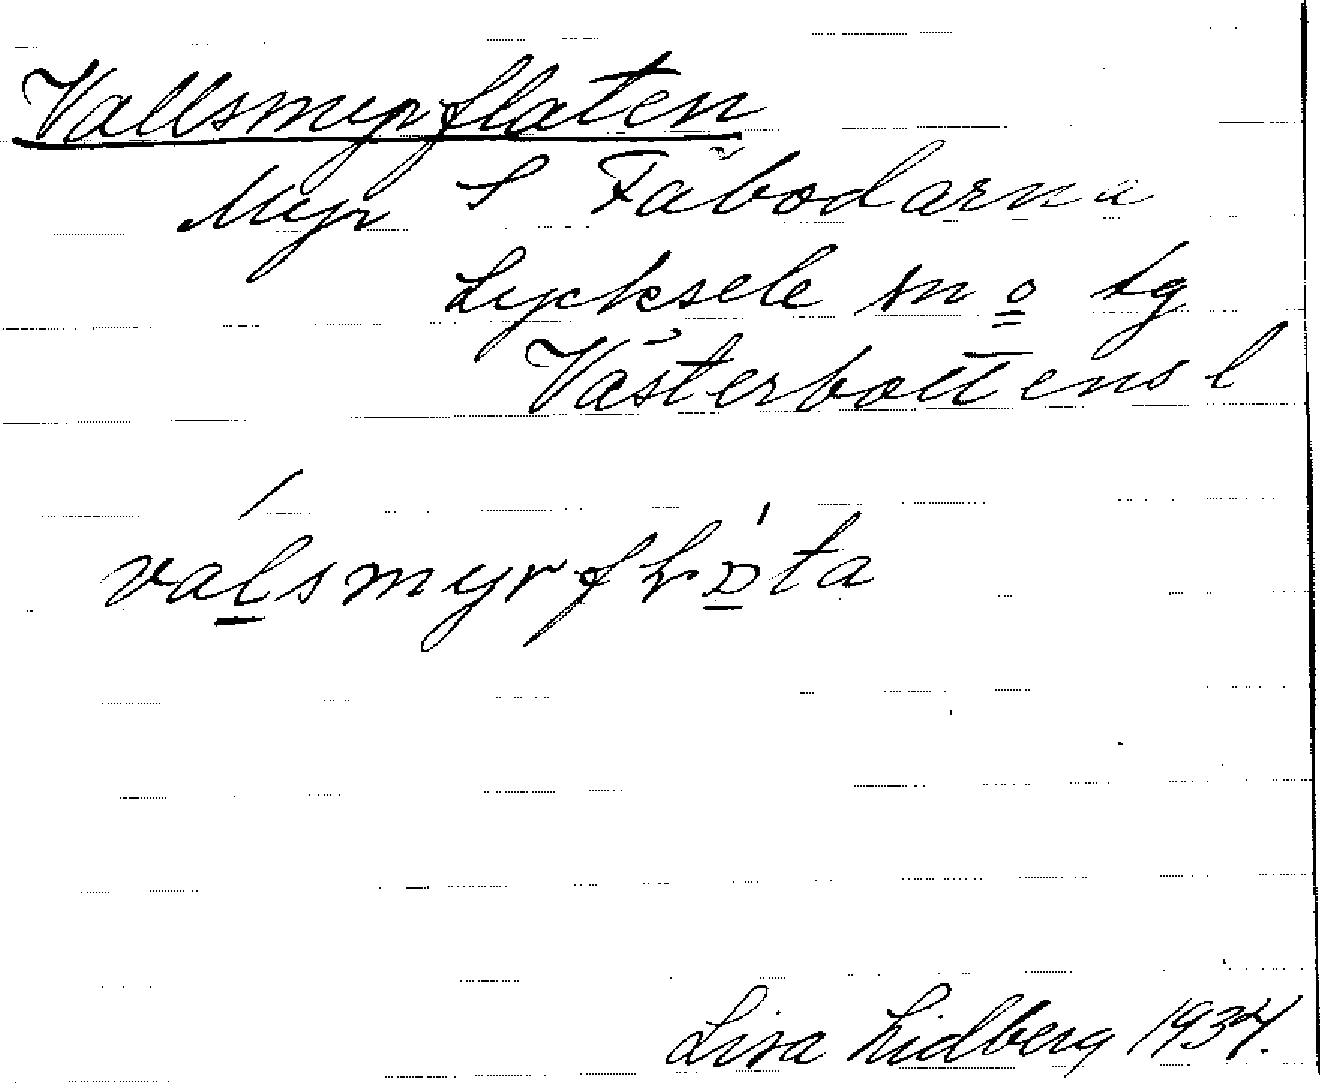 Vallsmyrflaten
Myr S Fäbodarna
Lycksele sn o tg
Västerbottens l
valsmyrf
Lisa Lidberg 1934.